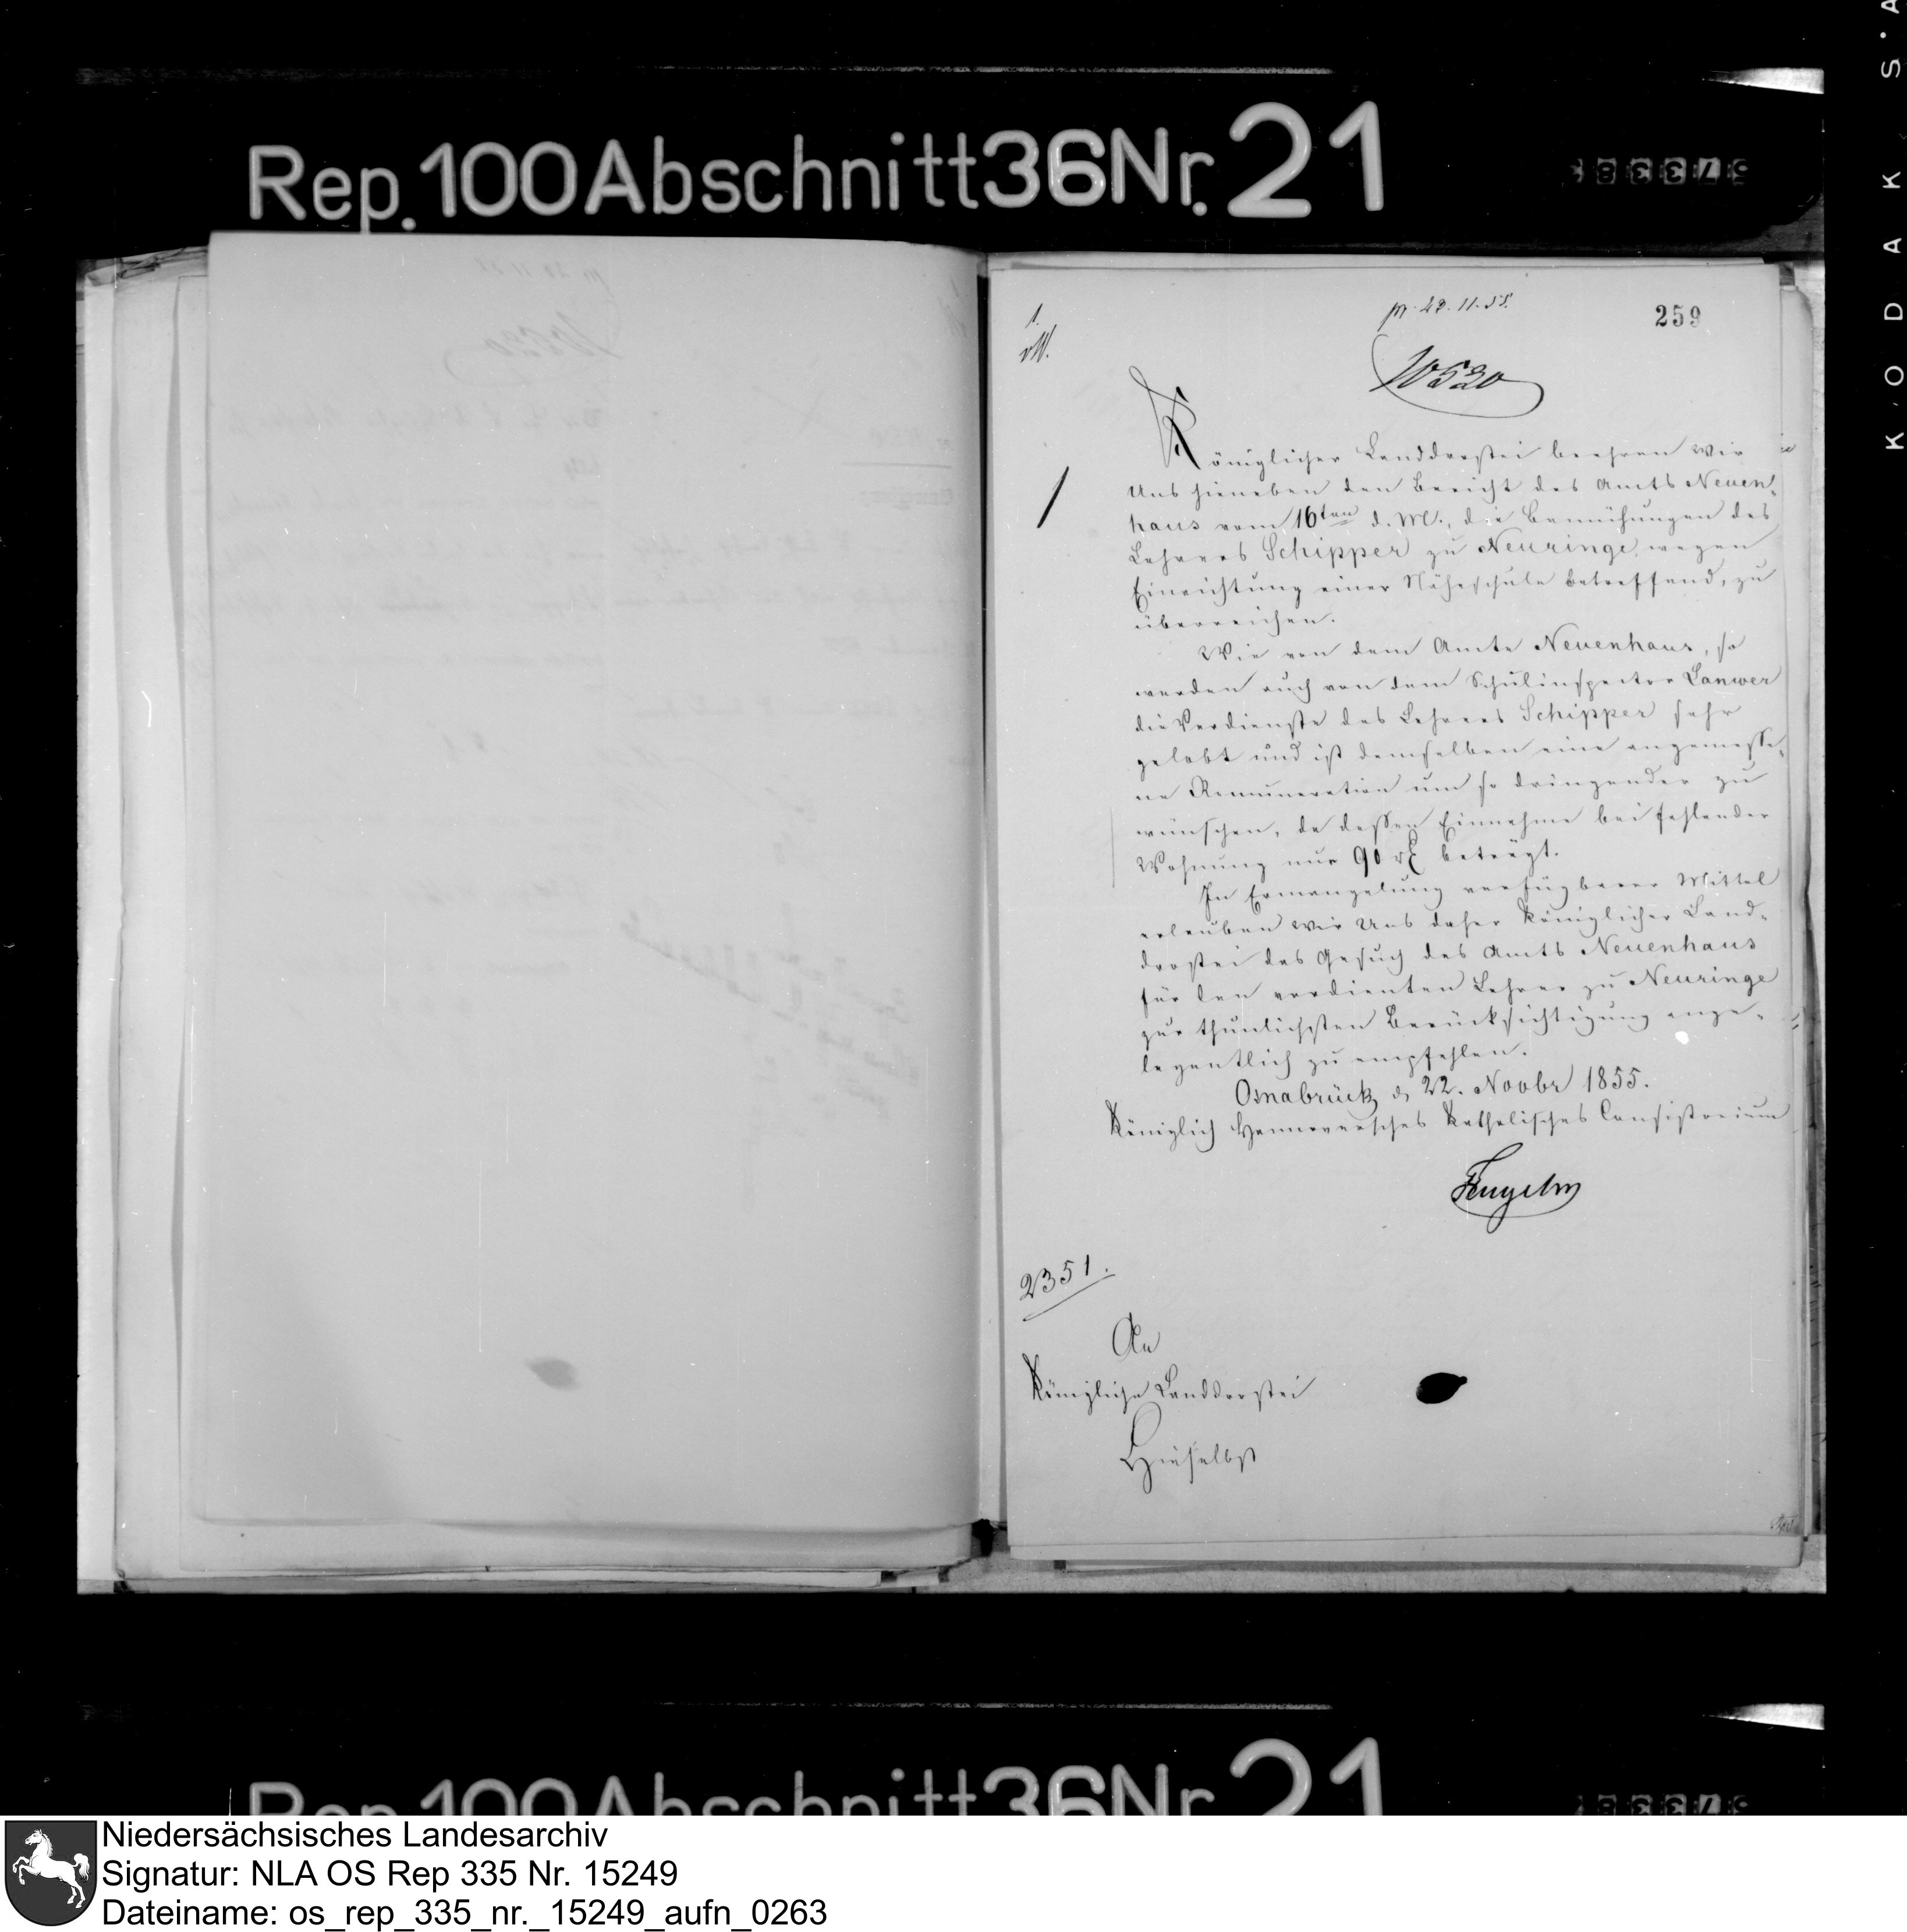 Rep. 100 Abschnitt 36 Nr. 21
259
10520
Königlicher Landdrostei beehren wir
Uns hieneben den Bericht des Amts Neuen-
haus vom 16ten d. M., die Bemühungen des
Lehrers Schipper zu Neuringe, wegen
Einrichtung einer Näheschule betreffend, zu
überreichen.
Wie von dem Amte Neuenhaus, so
werden auch von dem Schulinspector Lanwer
die Verdienste des Lehrers Schipper sehr
gelobt und ist demselben eine angemesse-
ne Remuneration um so dringender zu
wünschen, da dessen Einnahme bei fehlender
Wohnung nur 90 rt beträgt.
In Ermangelung verfügbarer Mittel
erlauben wir Uns daher Königlicher Land-
drostei das Gesuch des Amts Neuenhaus
für den verdienten Lehrer zu Neuringe
zur thunlichsten Berücksichtigung ange-
legentlich zu empfehlen.
Osnabrück d. 22. Novbr 1855.
Königlich Hannoversches Katholisches Consistorium
2351.
An
Königliche Landdrostei
Hieselbst
Rep. 100 Abschnitt 36 Nr. 21
KODAK S.A
Niedersächsisches Landesarchiv
Signatur: NLA OS Rep 335 Nr. 15249
Dateiname: os_rep_335_nr._15249_aufn_0263